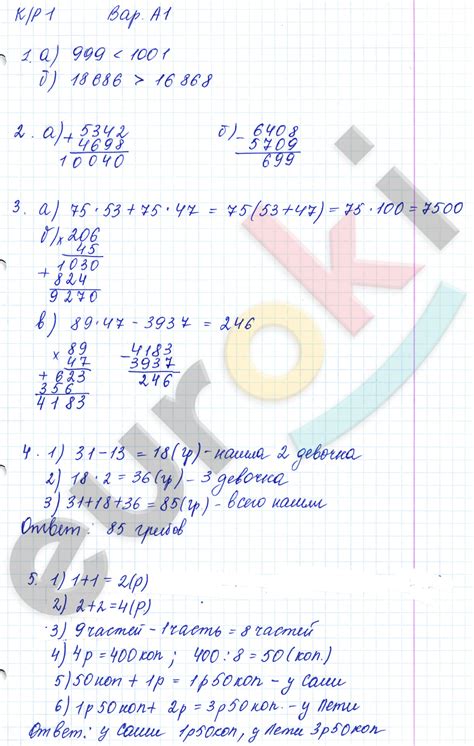 К/Р 1 Вар. А1
1. а) 999 < 1001
б) 18686 > 16868
2. а) + 5342 б) - 6408
4698 5709
10040 699
3. а) 75·53+75·47 = 75(53+47)=75·100=7500
б) × 206
45
+ 1030
824
9270
в) 89·47-3937 = 246
× 89 - 4183
47 3937
+ 623 246
356
4183
4. 1) 31-13 = 18(гр)-нашла 2 девочка
2) 18·2=36(гр)-3 девочка
3) 31+18+36=85(гр)-всего нашли
Ответ: 85 грибов
5. 1) 1+1=2(р)
2) 2+2=4(р)
3) 9 частей-1 часть=8 частей
4) 4р=400коп; 400:8=50(коп.)
5) 50коп+1р=1р50коп-у Саши
6) 1р50коп+ 2р=3р50коп.-у Пети
Ответ: у Саши 1р50коп, у Пети 3р50коп
euroki